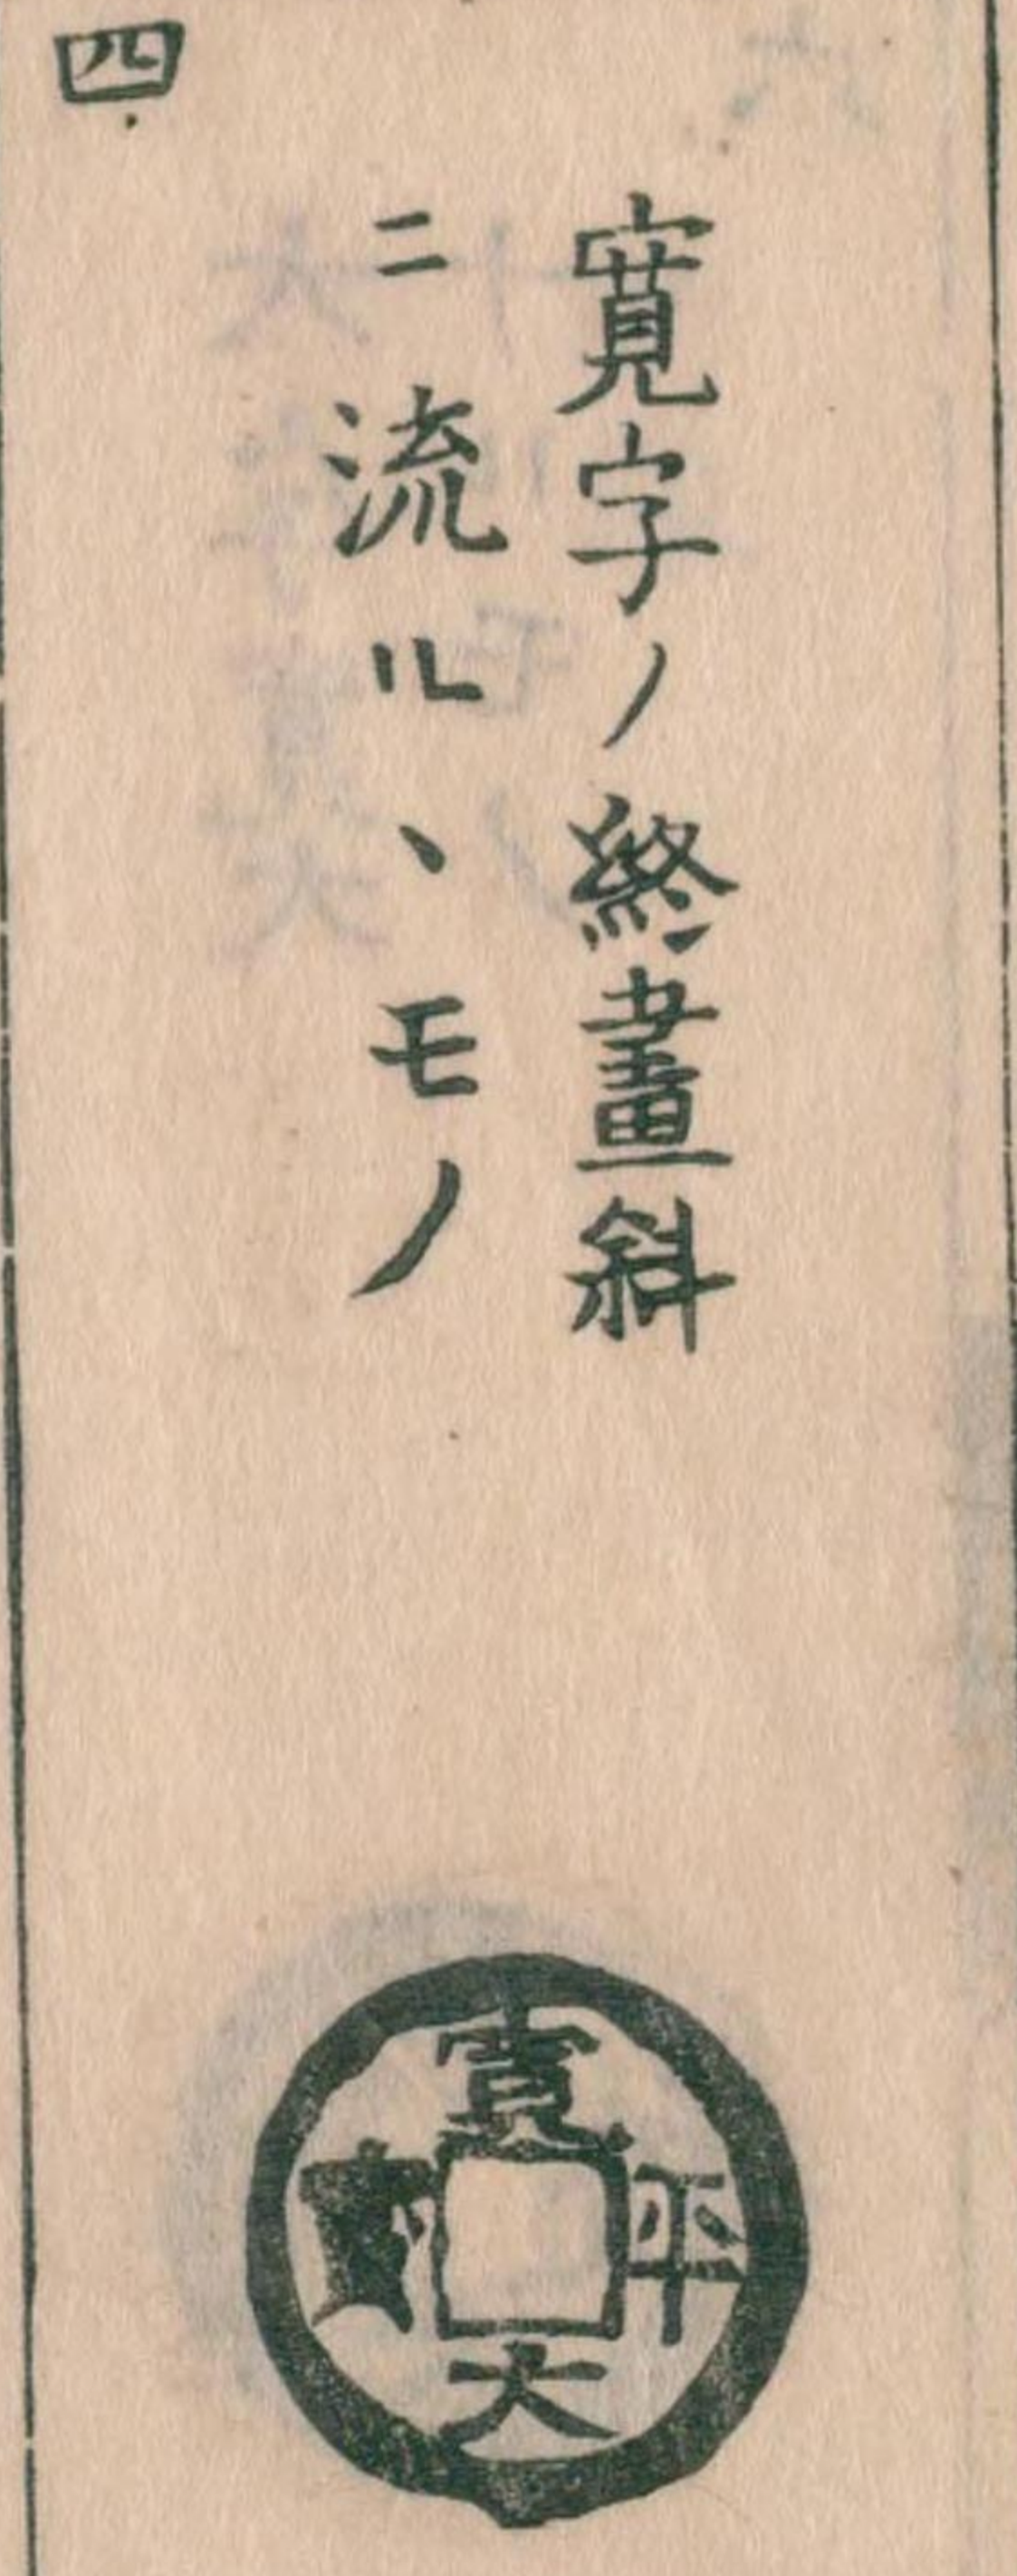 寛字ノ終畫斜
ニ流ルヽモノ
四
寛平大寳